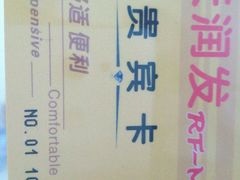 润发 RT-M
贵宾卡
适 便利
Comfortable
pensive
NO.01 10